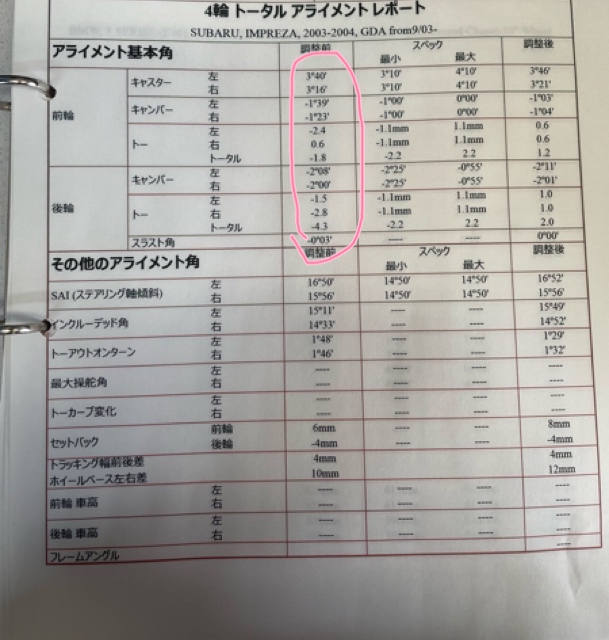 4輪 トータル アライメント レポート
SUBARU, IMPREZA, 2003-2004, GDA from9/03-
アライメント基本角 調整前 スペック 調整後
最小 最大
前輪 キャスター 左 3°40' 3°10' 4°10' 3°46'
右 3°16' 3°10' 4°10' 3°21'
キャンバー 左 -1°39' -1°00' 0°00' -1°03'
右 -1°23' -1°00' 0°00' -1°04'
トー 左 -2.4 -1.1mm 1.1mm 0.6
右 0.6 -1.1mm 1.1mm 0.6
トータル -1.8 -2.2 2.2 1.2
後輪 キャンバー 左 -2°08' -2°25' -0°55' -2°11'
右 -2°00' -2°25' -0°55' -2°01'
トー 左 -1.5 -1.1mm 1.1mm 1.0
右 -2.8 -1.1mm 1.1mm 1.0
トータル -4.3 -2.2 2.2 2.0
スラスト角 -0°03' ---- ---- 0°00'
その他のアライメント角 調整前 スペック 調整後
最小 最大
SAI (ステアリング軸傾斜) 左 16°50' 14°50' 14°50' 16°52'
右 15°56' 14°50' 14°50' 15°56'
インクルーデッド角 左 15°11' ---- ---- 15°49'
右 14°33' ---- ---- 14°52'
トーアウトオンターン 左 1°48' ---- ---- 1°29'
右 1°46' ---- ---- 1°32'
最大操舵角 左 ---- ---- ---- ----
右 ---- ---- ---- ----
トーカーブ変化 左 ---- ---- ---- ----
右 ---- ---- ---- ----
セットバック 前輪 6mm ---- ---- 8mm
後輪 -4mm ---- ---- -4mm
トラッキング幅前後差 4mm ---- ---- 4mm
ホイールベース左右差 10mm ---- ---- 12mm
前輪 車高 左 ---- ---- ---- ----
右 ---- ---- ---- ----
後輪 車高 左 ---- ---- ---- ----
右 ---- ---- ---- ----
フレームアングル ----